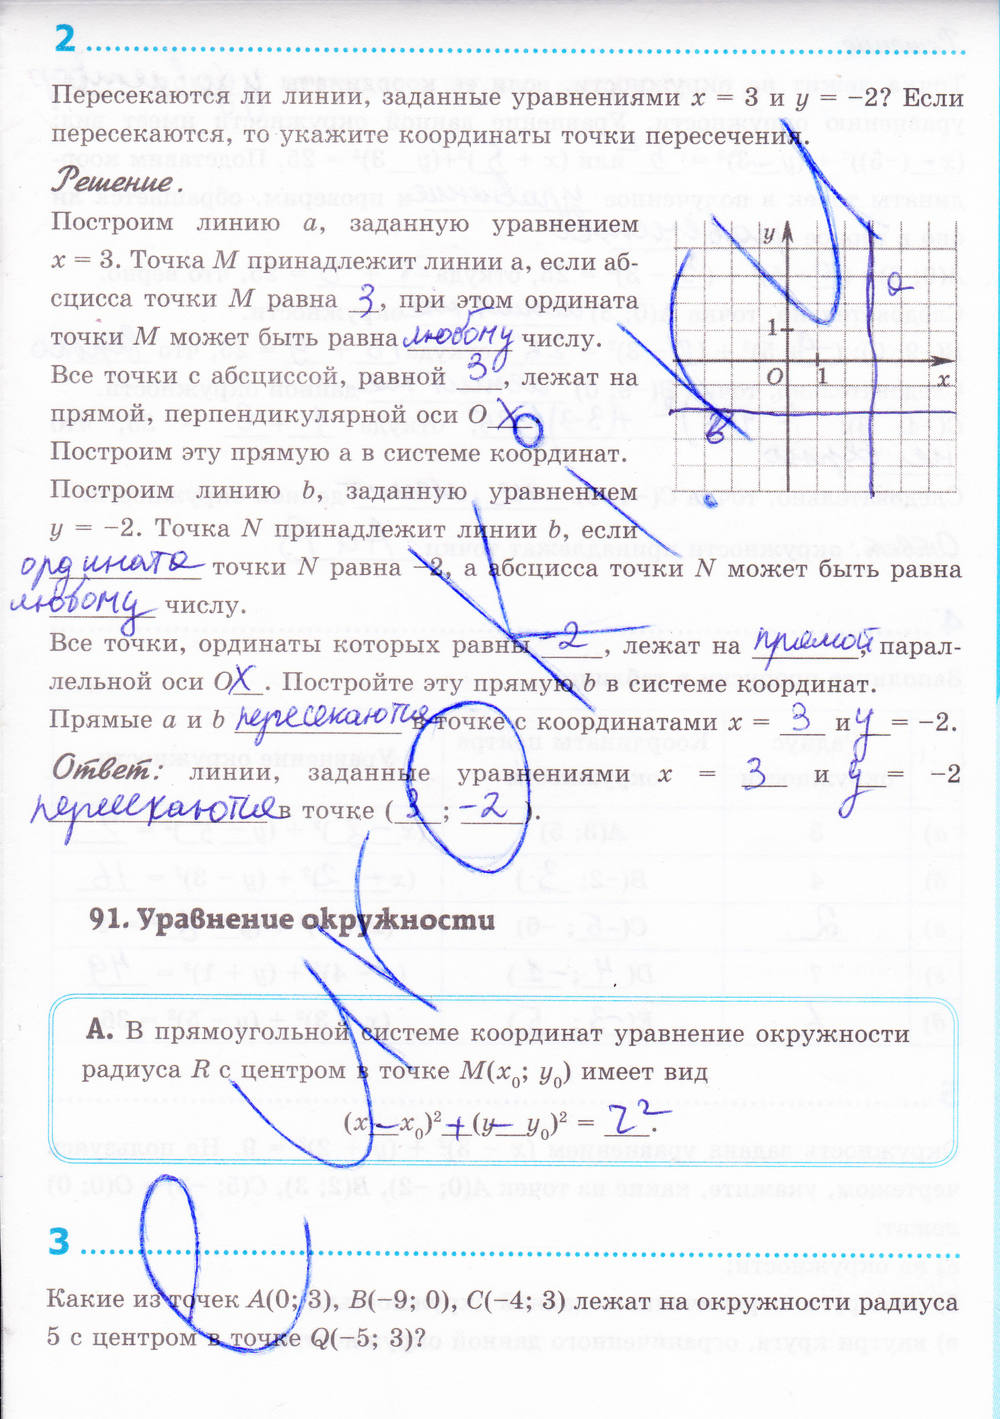 2
Пересекаются ли линии, заданные уравнениями x = 3 и y = −2? Если
пересекаются, то укажите координаты точки пересечения.
Решение.
Построим линию a, заданную уравнением
x = 3. Точка M принадлежит линии a, если аб-
сцисса точки M равна 3, при этом ордината
точки M может быть равна любому числу.
Все точки с абсциссой, равной 3, лежат на
прямой, перпендикулярной оси O X.
Построим эту прямую a в системе координат.
Построим линию b, заданную уравнением
y = −2. Точка N принадлежит линии b, если
ордината точки N равна −2, а абсцисса точки N может быть равна
любому числу.
Все точки, ординаты которых равны -2, лежат на прямой, парал-
лельной оси OX. Постройте эту прямую b в системе координат.
Прямые a и b пересекаются в точке с координатами x = 3 и y = −2.
Ответ: линии, заданные уравнениями x = 3 и y = −2
пересекаются в точке (3; -2).
y
a
1
O
1
x
b
91. Уравнение окружности
А. В прямоугольной системе координат уравнение окружности
радиуса R с центром в точке M(x₀; y₀) имеет вид
(x − x₀)² + (y − y₀)² = r².
3
Какие из точек A(0; 3), B(−9; 0), C(−4; 3) лежат на окружности радиуса
5 с центром в точке Q(−5; 3)?